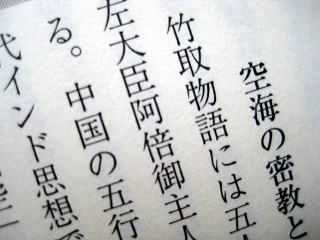 空海の密教と
竹取物語には五
左大臣阿倍御主人
る。中国の五行
代インド思想で